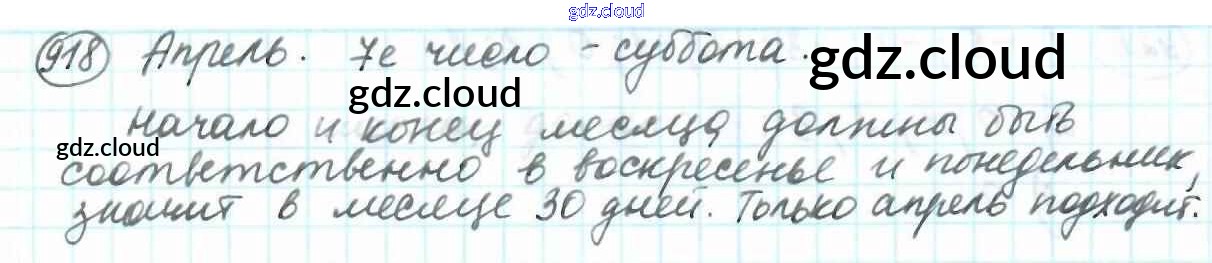 gdz.cloud
918 Апрель. 7е число - суббота.
gdz.cloud
gdz.cloud
Начало и конец месяца должны быть
gdz.cloud
соответственно в воскресенье и понедельник,
значит в месяце 30 дней. Только апрель подходит.